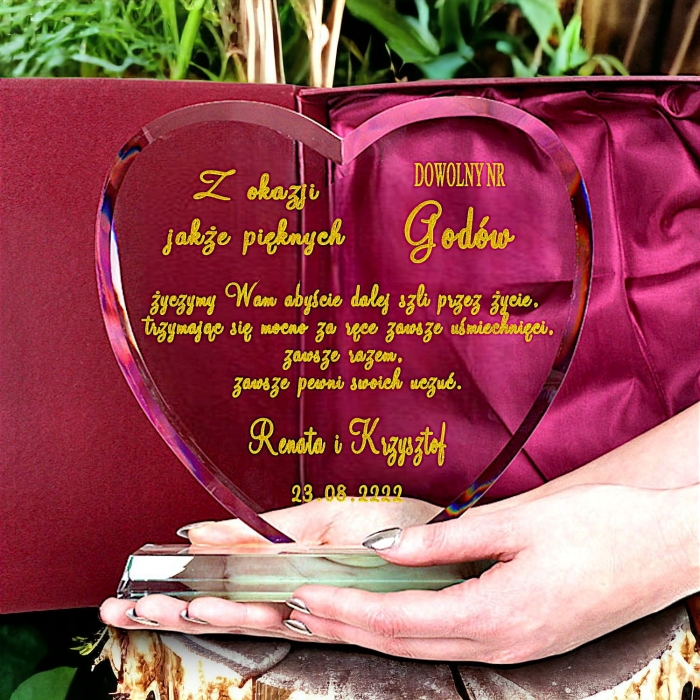 Z okazji
jakże pięknych
DOWOLNY NR
Godów
życzymy Wam abyście dalej szli przez życie,
trzymając się mocno za ręce zawsze uśmiechnięci,
zawsze razem,
zawsze pewni swoich uczuć.
Renata i Krzysztof
23.08.2222